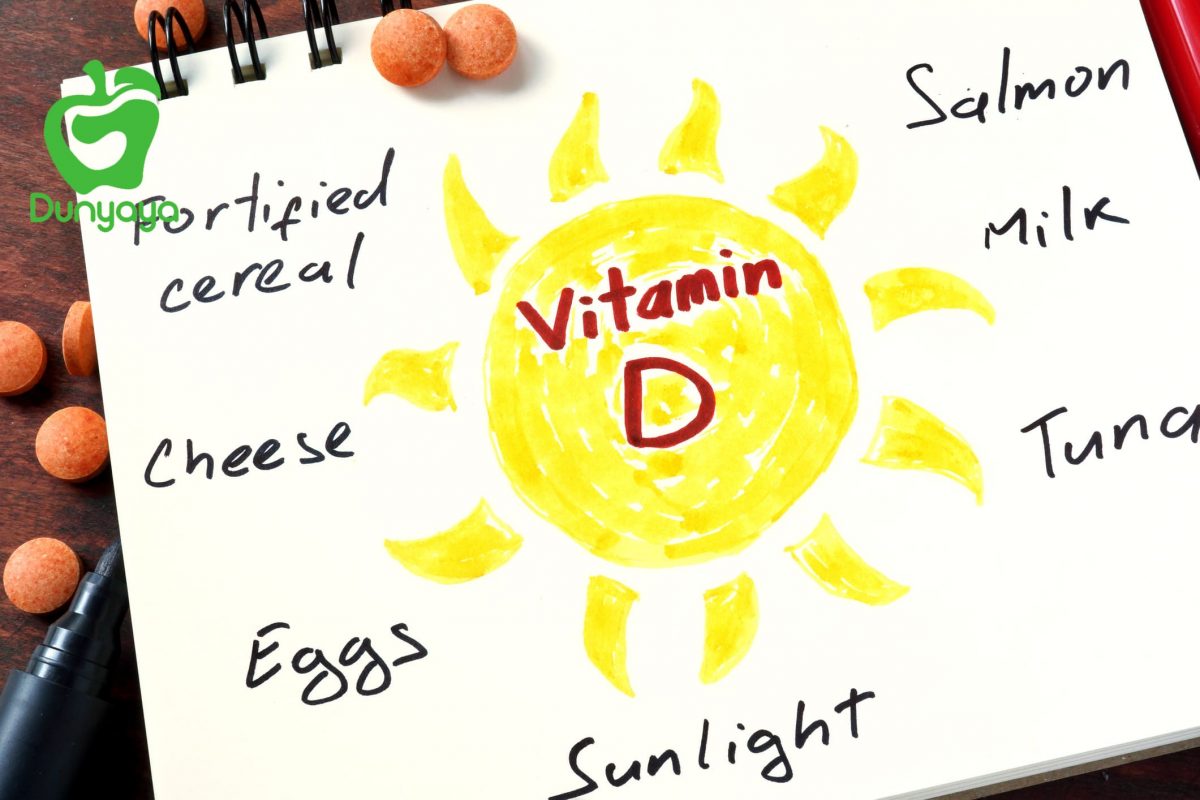 Dunyaya
Fortified
cereal
Cheese
Eggs
Vitamin
D
Sunlight
Salmon
Milk
Tuna